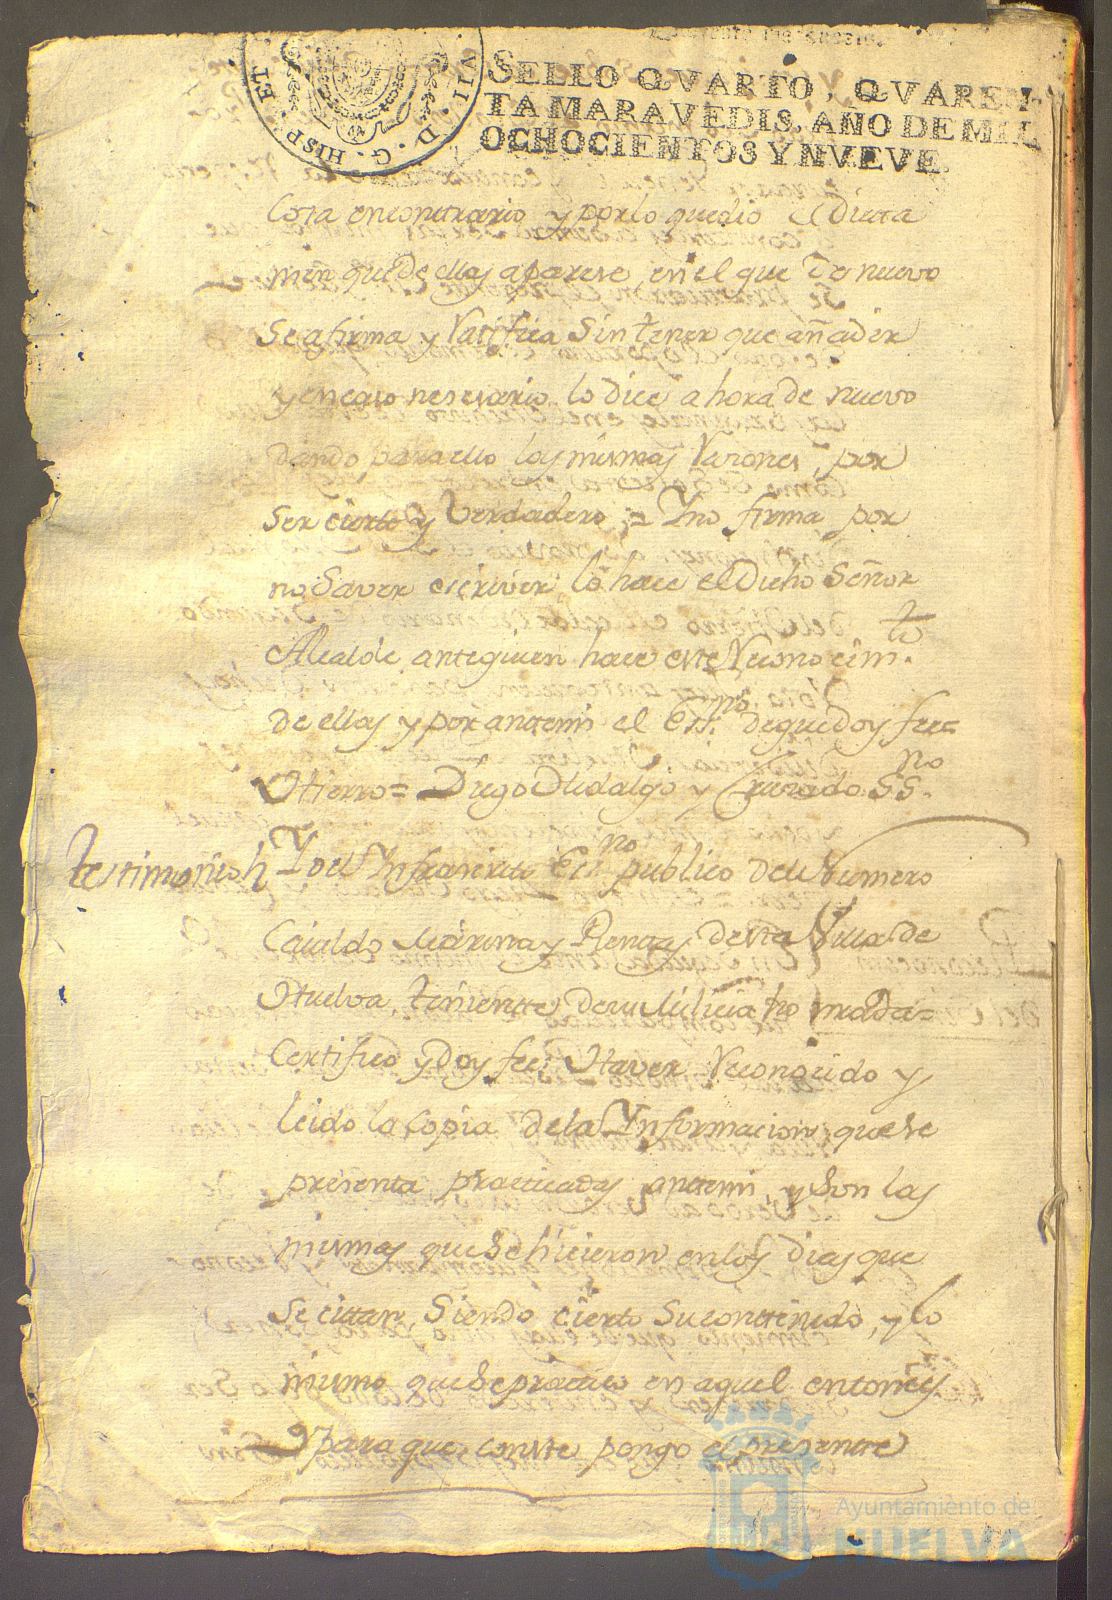 VII · D · G · HISP · ET ·
SELLO QVARTO, QVAREN-
TA MARAVEDIS, AÑO DE MIL
OCHOCIENTOS Y NVEVE.
Cosa encontrario y por lo que dio el Dicta
men que de ellas aparese, en el que De nuevo
Se afirma y Ratifica Sin tener que añadir
y en caso nesesario lo dice ahora de nuevo
dando para ello las mismas Razones, por
Ser cierto y Verdadero = Yno firma por
no Saver escriver, lo hace el Dicho Señor
Alcalde, antequien hace este Reconocim.to
de ellas y por antemi el Ess.no de que doy fee=
Hierro= Diego Hidalgo y Crusado SS.no
Testimonio Yo el Infrascrito Ess.no publico del Numero
Cavildo Marina y Rentas de esta Villa de
Huelva, teniente de su Milicia honrrada=
Certifico y Doy fee: Haver Reconocido y
leido la Copia de la Ynformacion que se
presenta practicadas antemi, y Son las
mismas que se hicieron en los Dias que
Se cittan, Siendo cierto Su contenido, y lo
mismo que Se practico en aquel entonces
Y para que conste pongo el presente
Ayuntamiento de
HUELVA